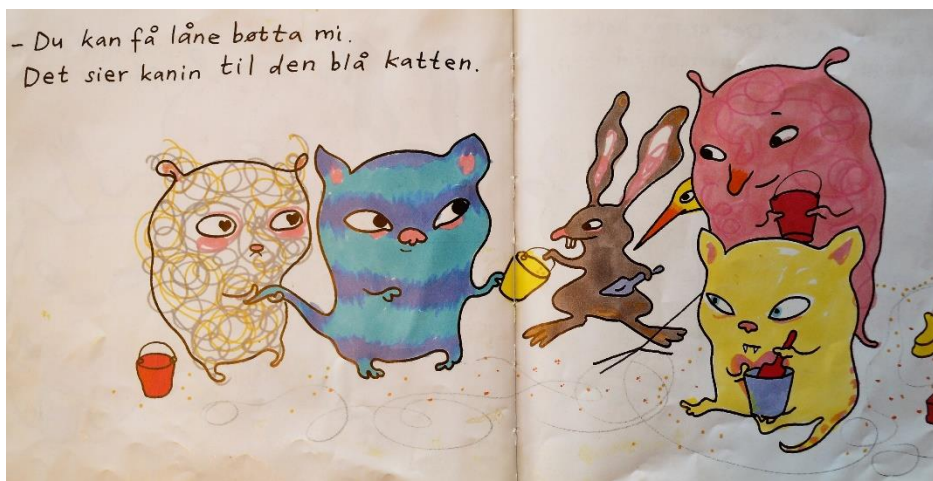 - Du kan få låne bøtta mi.
Det sier kanin til den blå katten.